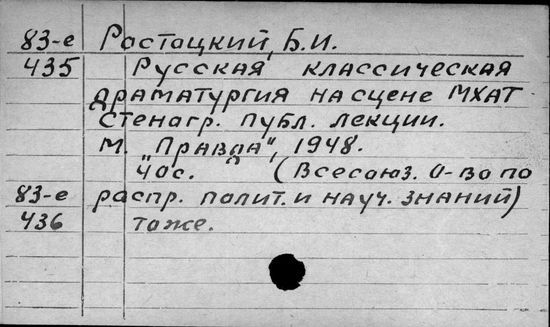 83-е Ростоцкий, Б.И.
435 Русская классическая
драматургия на сцене МХАТ
Стеногр. публ. лекции.
М. „Правда", 1948.
40с. (Всесоюз. О-во по
83-е распр. полит. и науч. знаний)
436 тоже.